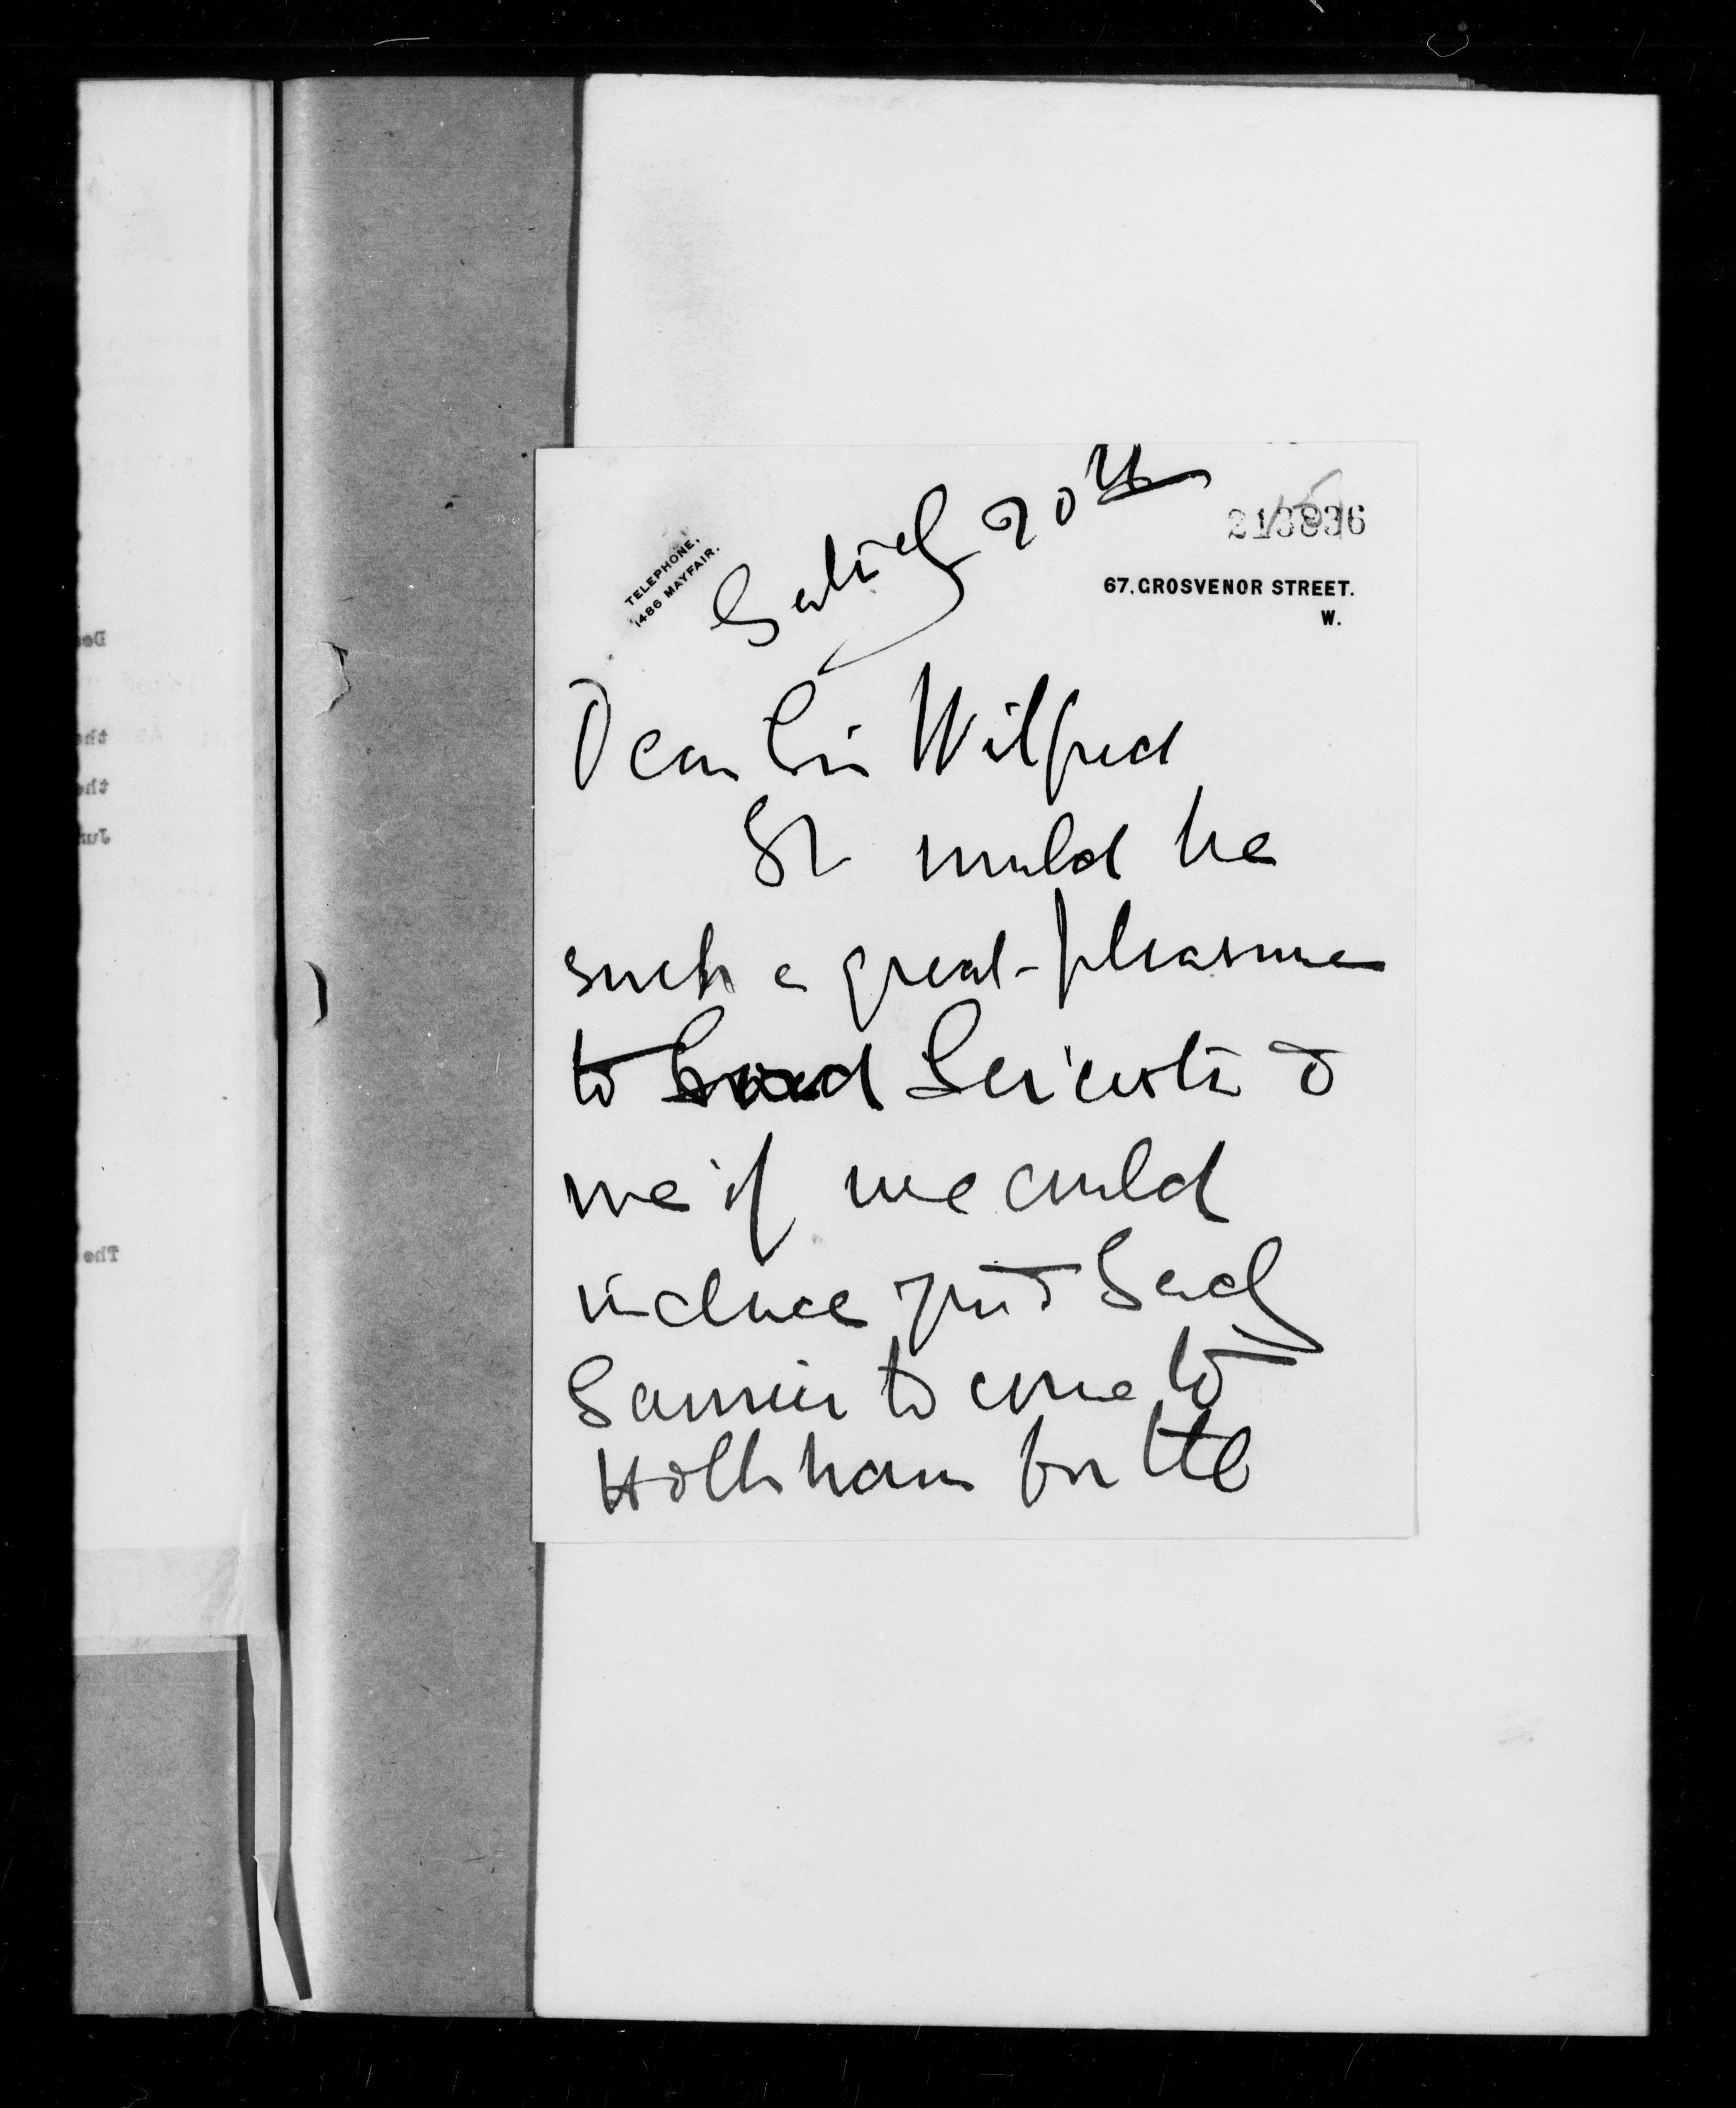 Saturday 20th
213836
TELEPHONE,
1486 MAYFAIR.
67, GROSVENOR STREET.
W.
Dear Sir Wilfred
It would be
such a great pleasure
to Leicester &
me if we could
induce you & Lady
Laurier to come to
Holkham for the